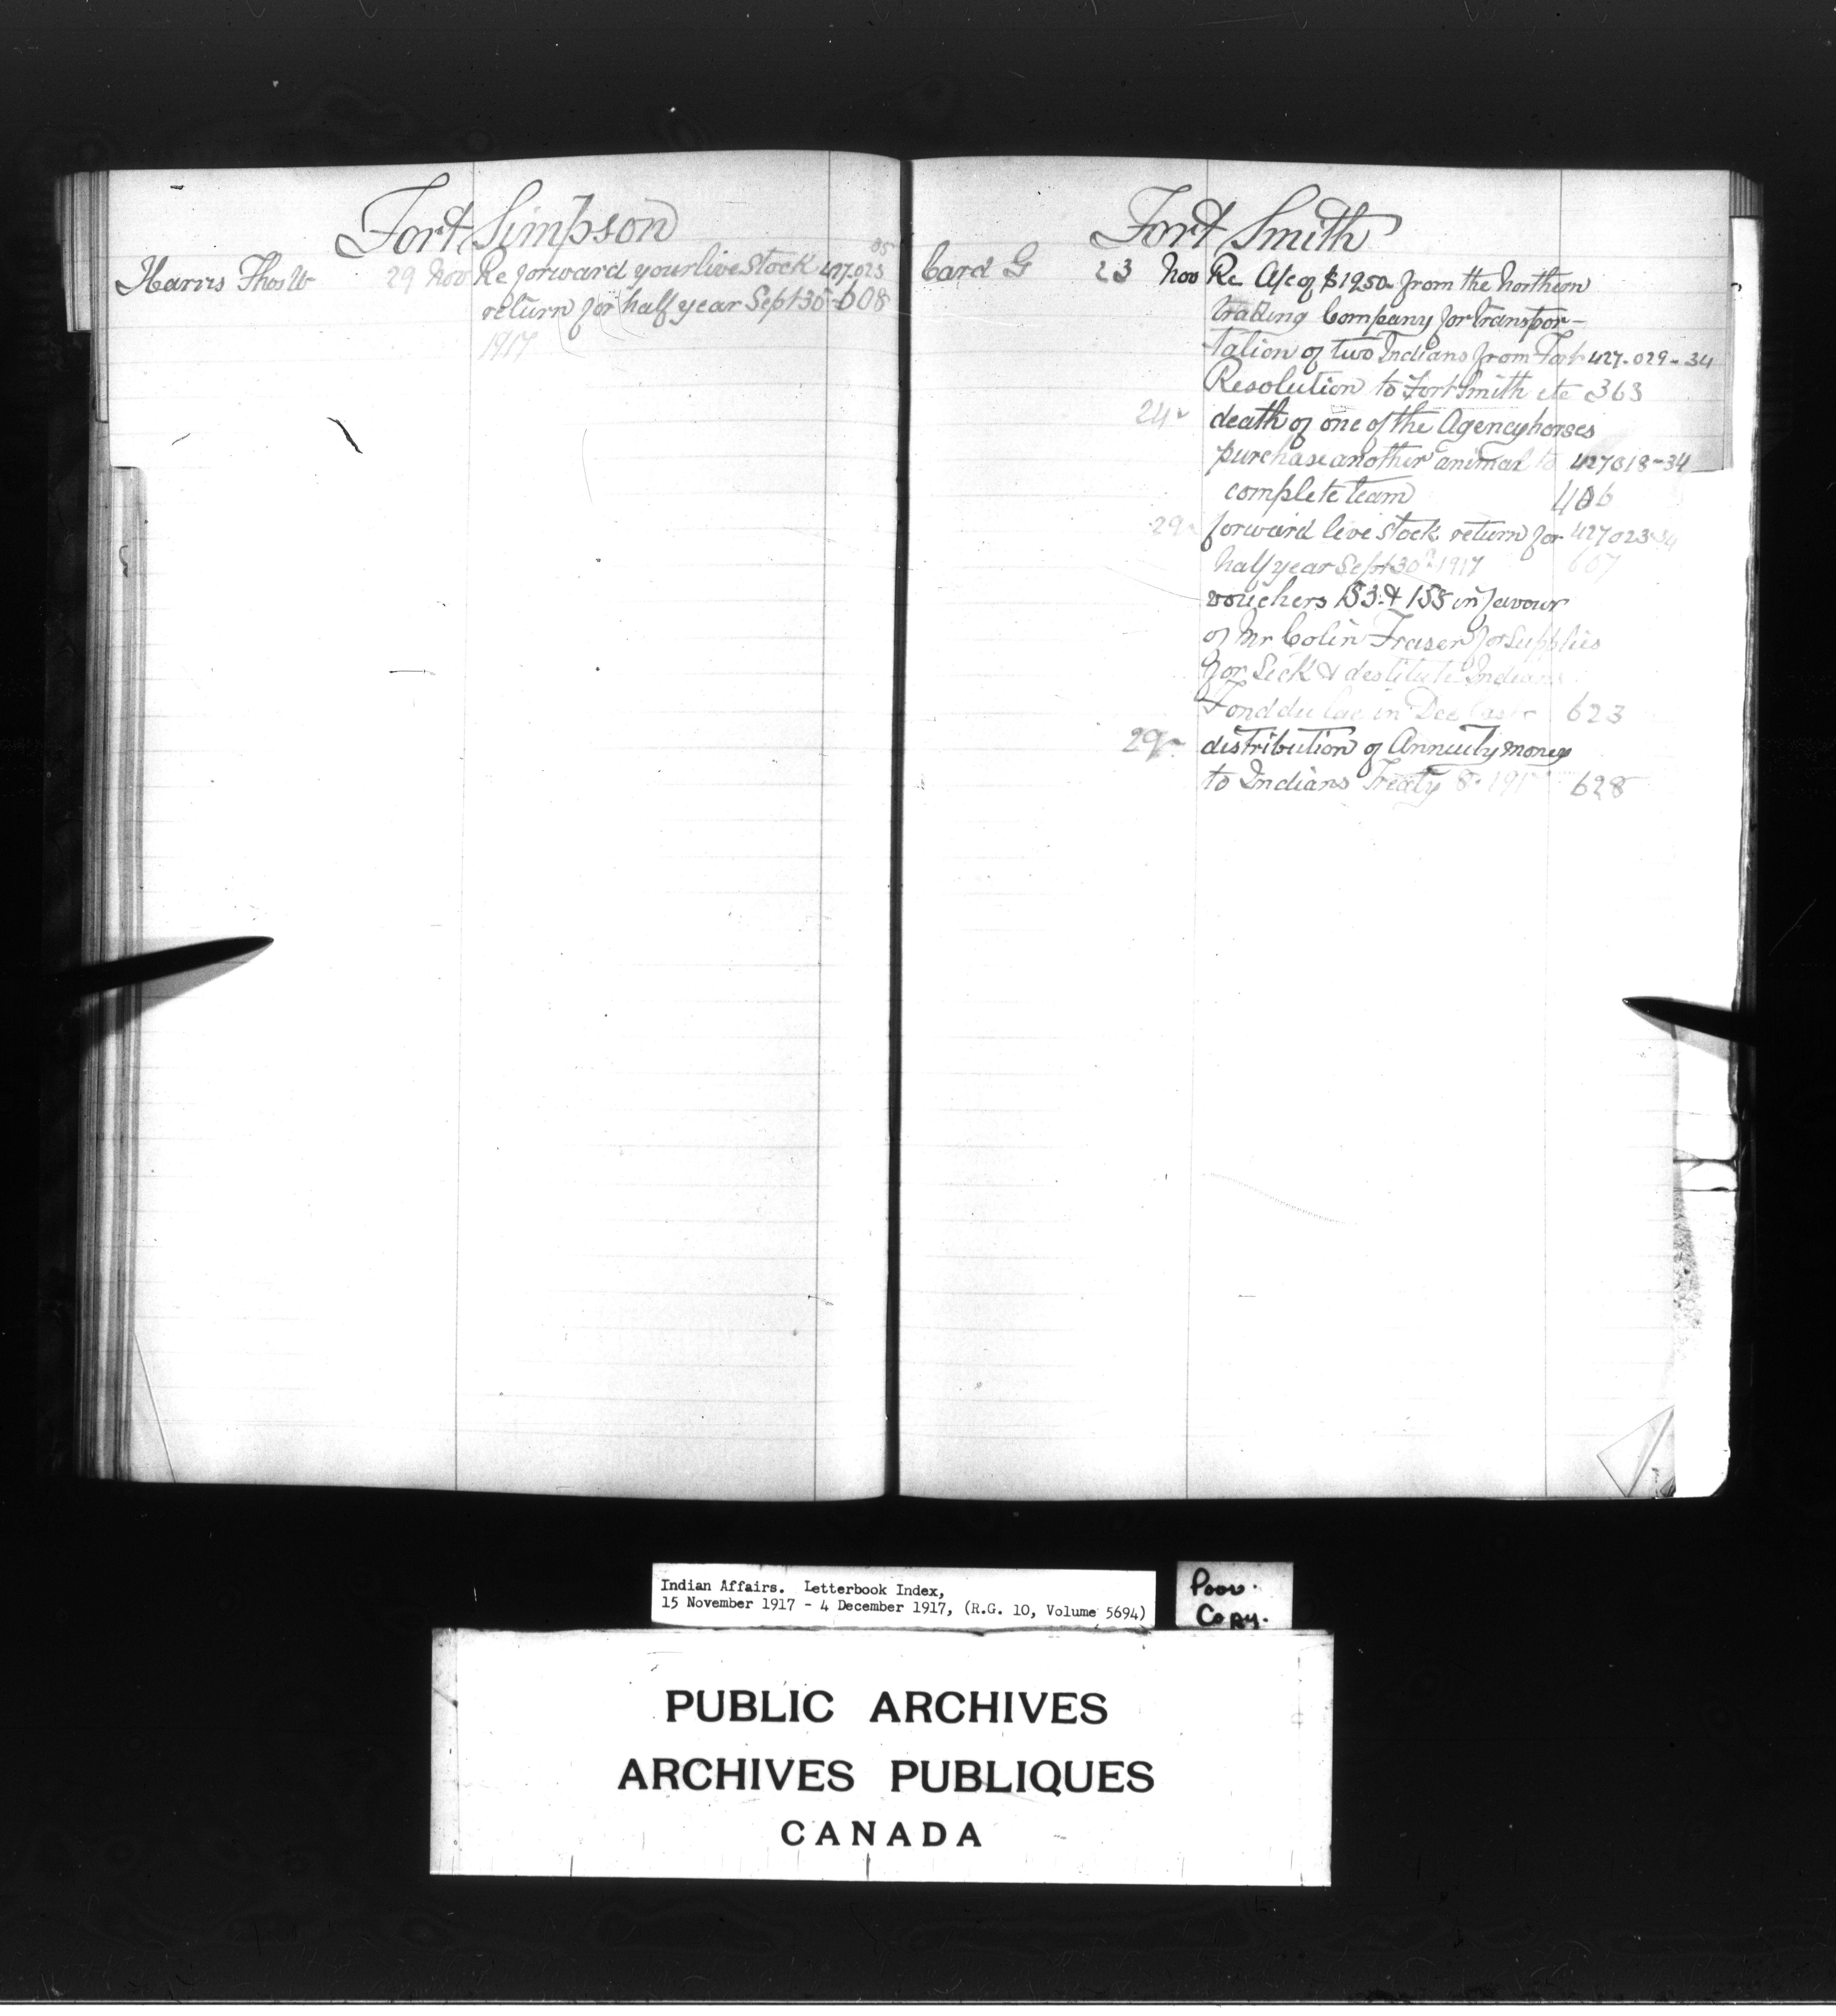 Fort Simpson
Harris Thos W 29 Nov Re forward your live stock 427.023 05
return for half year Sept 30 - 608
1917
Fort Smith
Card G 23 Nov Re A/c of $19.50 from the Northern
Trading Company for transpor-
tation of two Indians from Fort 427-029-34
Resolution to Fort Smith etc 363
24 death of one of the Agency horses
purchase another animal to 427018-34
complete team 406
29 forward live stock return for 427023-34
half year Sept 30 1917 607
vouchers 153 & 155 in favour
of Mr Colin Fraser for supplies
for sick & destitute Indians
Fond du Lac in Dec last 623
29 distribution of Annuity money
to Indians Treaty 8 628
Indian Affairs. Letterbook Index,
15 November 1917 - 4 December 1917, (R.G. 10, Volume 5694)
Poor
Copy.
PUBLIC ARCHIVES
ARCHIVES PUBLIQUES
CANADA